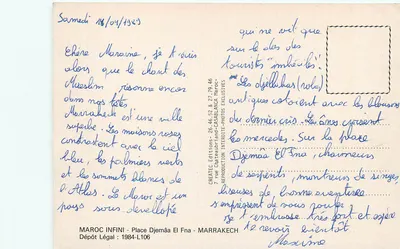 Samedi 18/04/1989
Chère Maraine, je t'écris
alors que le chant des
Muezlim résonne encore
dans nos têtes
Marrakech est une ville
superbe. Les maisons roses
contrastent avec le ciel
bleu, les palmiers verts
et les sommets blancs de
l'Atlas. Le Maroc est un
pays sous développé
qui ne vit que
sur le dos des
touristes "imbéciles".
Les djellabas (robe)
antique cotoient avec les blousons
du dernier cri. Les ânes croisent
les mercedes. Sur la place
Djemâa El Fna, charmeurs
de serpents, montreurs de singes
diseuses de bonne aventure
s'empressent de nous
Je t'embrasse très fort et espère
te revoir bientôt
MAROC INFINI - Place Djemâa El Fna - MARRAKECH
Dépôt Légal : 1984-L106